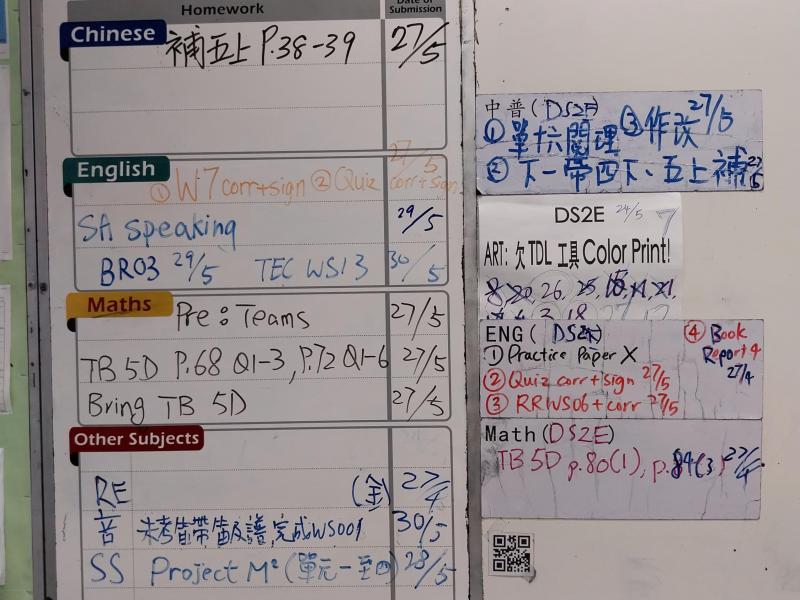 Homework
Date of
Submission
Chinese
補五上 P.38-39 27/5
English
① W7 corr+sign ② Quiz corr+sign 27/5
SA speaking 29/5
BR03 29/5 TEC WS13 30/5
Maths
Pre: Teams 27/5
TB 5D P.68 Q1-3, P.72 Q1-6 27/5
Bring TB 5D 27/5
Other Subjects
RE (金) 27/4
音 未考笛帶笛及譜,完成WS001 30/5
SS Project M² (單元一至四) 28/5
中普(DS2E)
① 單六閱理 ③作改 27/5
② 下一帶四下、五上補 27/5
DS2E 24/5 7
ART: 欠 TDL 工具 Color Print!
26, 25,
3, 18 27, 12
ENG( DS2E)
① Practice Paper X
② Quiz corr+sign 27/5
③ RRWS06+corr 27/5
④ Book
Report 4
27/4
Math(DS2E)
TB 5D p.80(1), p.84(3) 27/4